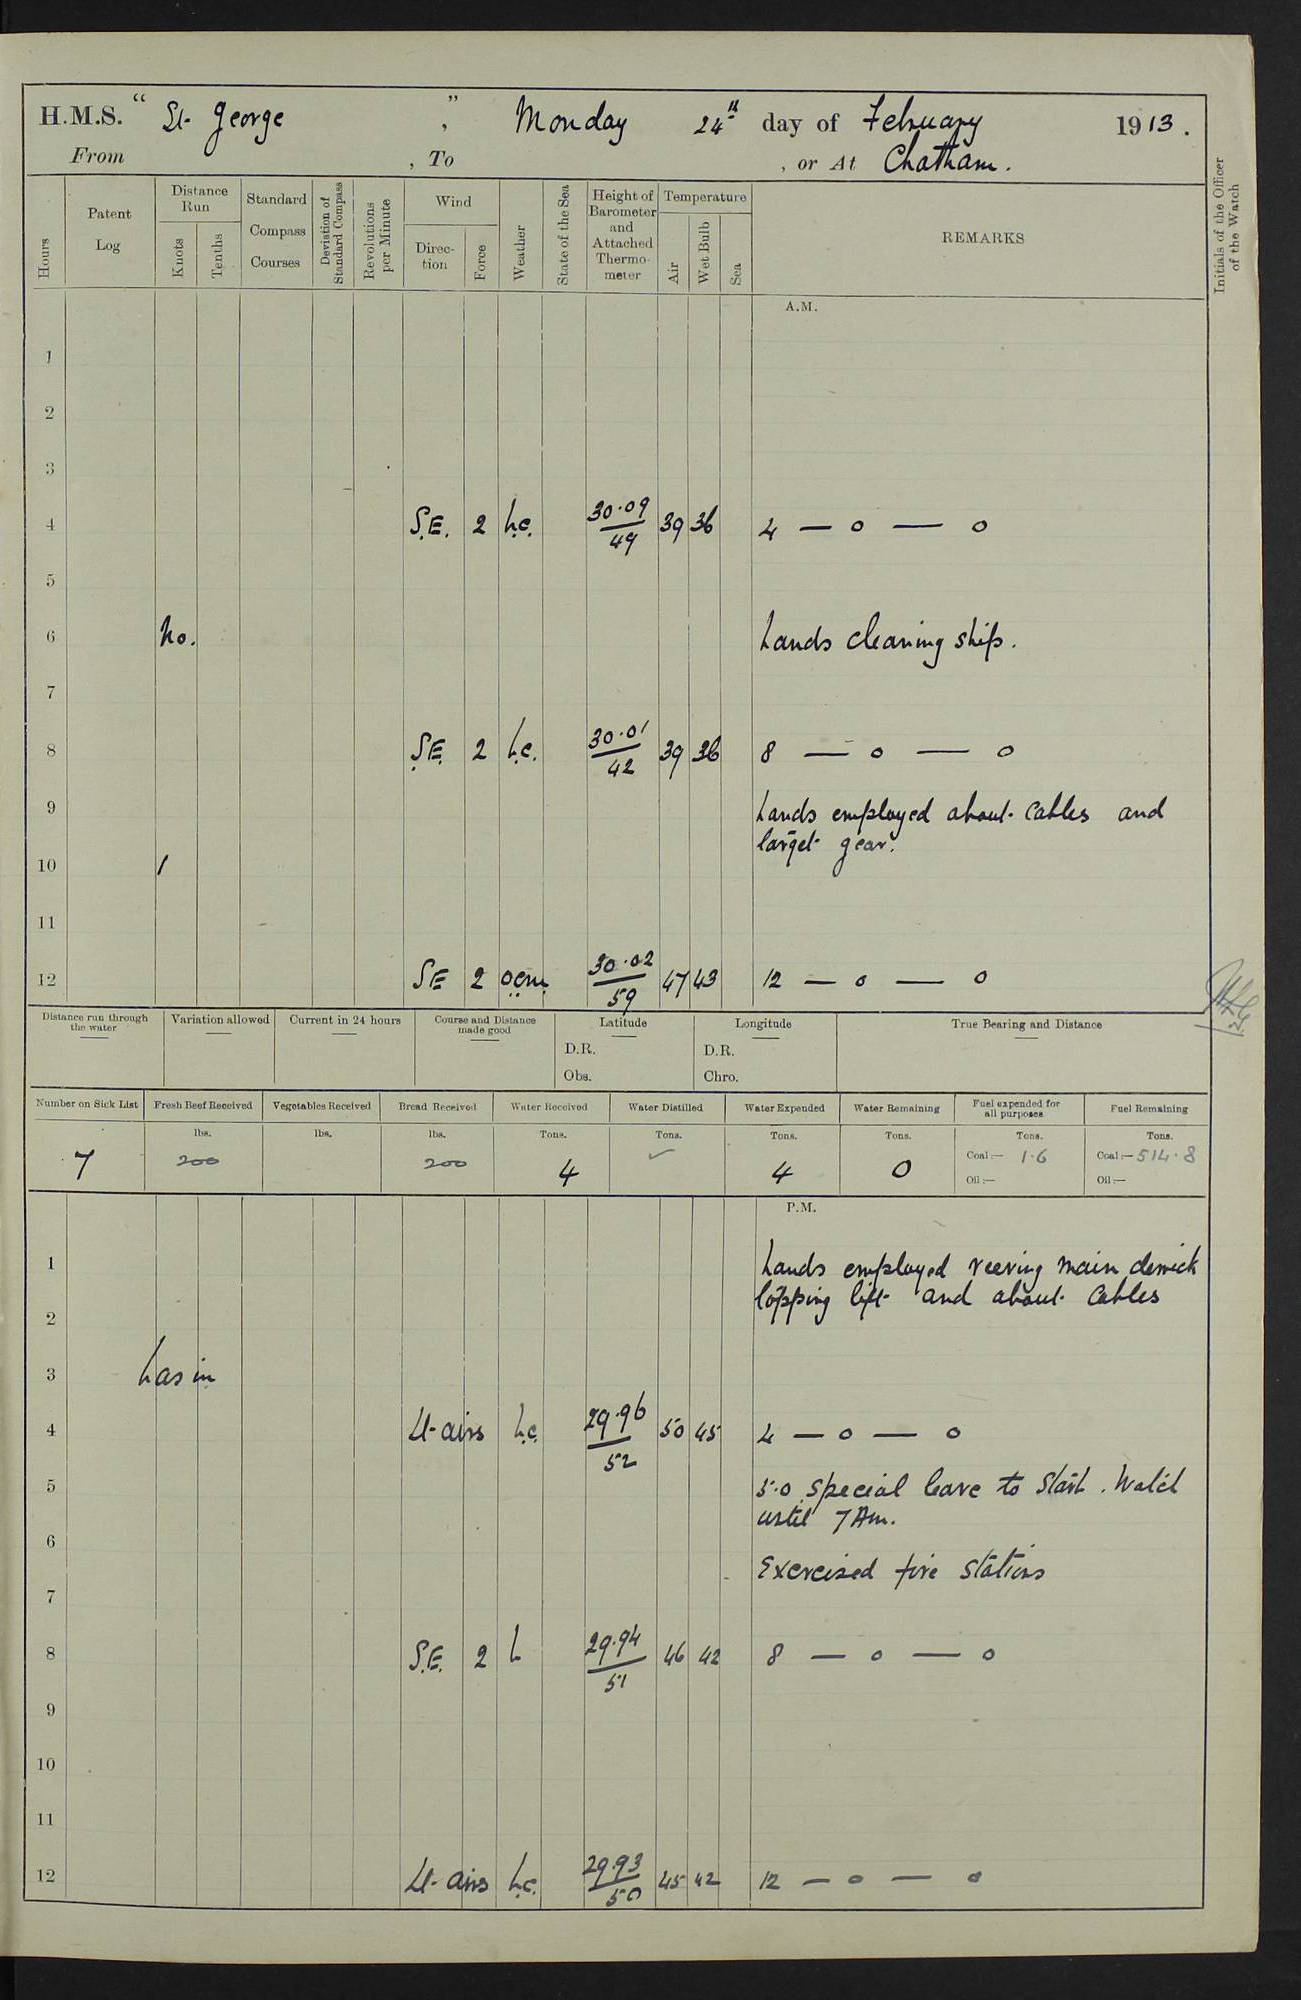 H.M.S. "St George", Monday 24th day of February 1913.
From , To , or At Chatham.
Hours
Patent Log
Distance Run
Knots
Tenths
Standard Compass Courses
Deviation of Standard Compass
Revolutions per Minute
Wind
Direction
Force
Weather
State of the Sea
Height of Barometer and Attached Thermometer
Temperature
Air
Wet Bulb
Sea
REMARKS
Initials of the Officer of the Watch
A.M.
1
2
3
4 S.E. 2 b.c. 30.09/49 39 36 4 — o — o
5
6 No. Hands cleaning ship.
7
8 S.E. 2 b.c. 30.01/42 39 36 8 — o — o
9 Hands employed about cables and
target gear.
10 1
11
12 SE 2 ocm 30.02/59 47 43 12 — o — o
Distance run through the water
Variation allowed
Current in 24 hours
Course and Distance made good
Latitude
D.R.
Obs.
Longitude
D.R.
Chro.
True Bearing and Distance
Number on Sick List
Fresh Beef Received
Vegetables Received
Bread Received
Water Received
Water Distilled
Water Expended
Water Remaining
Fuel expended for all purposes
Fuel Remaining
lbs. lbs. lbs. Tons. Tons. Tons. Tons. Tons. Tons.
7 200 200 4 ✓ 4 0 Coal:— 1.6 Coal:— 514.8
Oil:— Oil:—
P.M.
1 Hands employed reeving main derrick
topping lift and about cables
2
3 has in
4 Lt airs b.c. 29.96/52 50 45 4 — o — o
5 5.0 special leave to Starb. Watch
until 7 Am.
6
Exercised fire stations
7
8 S.E. 2 b 29.94/51 46 42 8 — o — o
9
10
11
12 Lt airs b.c. 29.93/50 45 42 12 — o — o